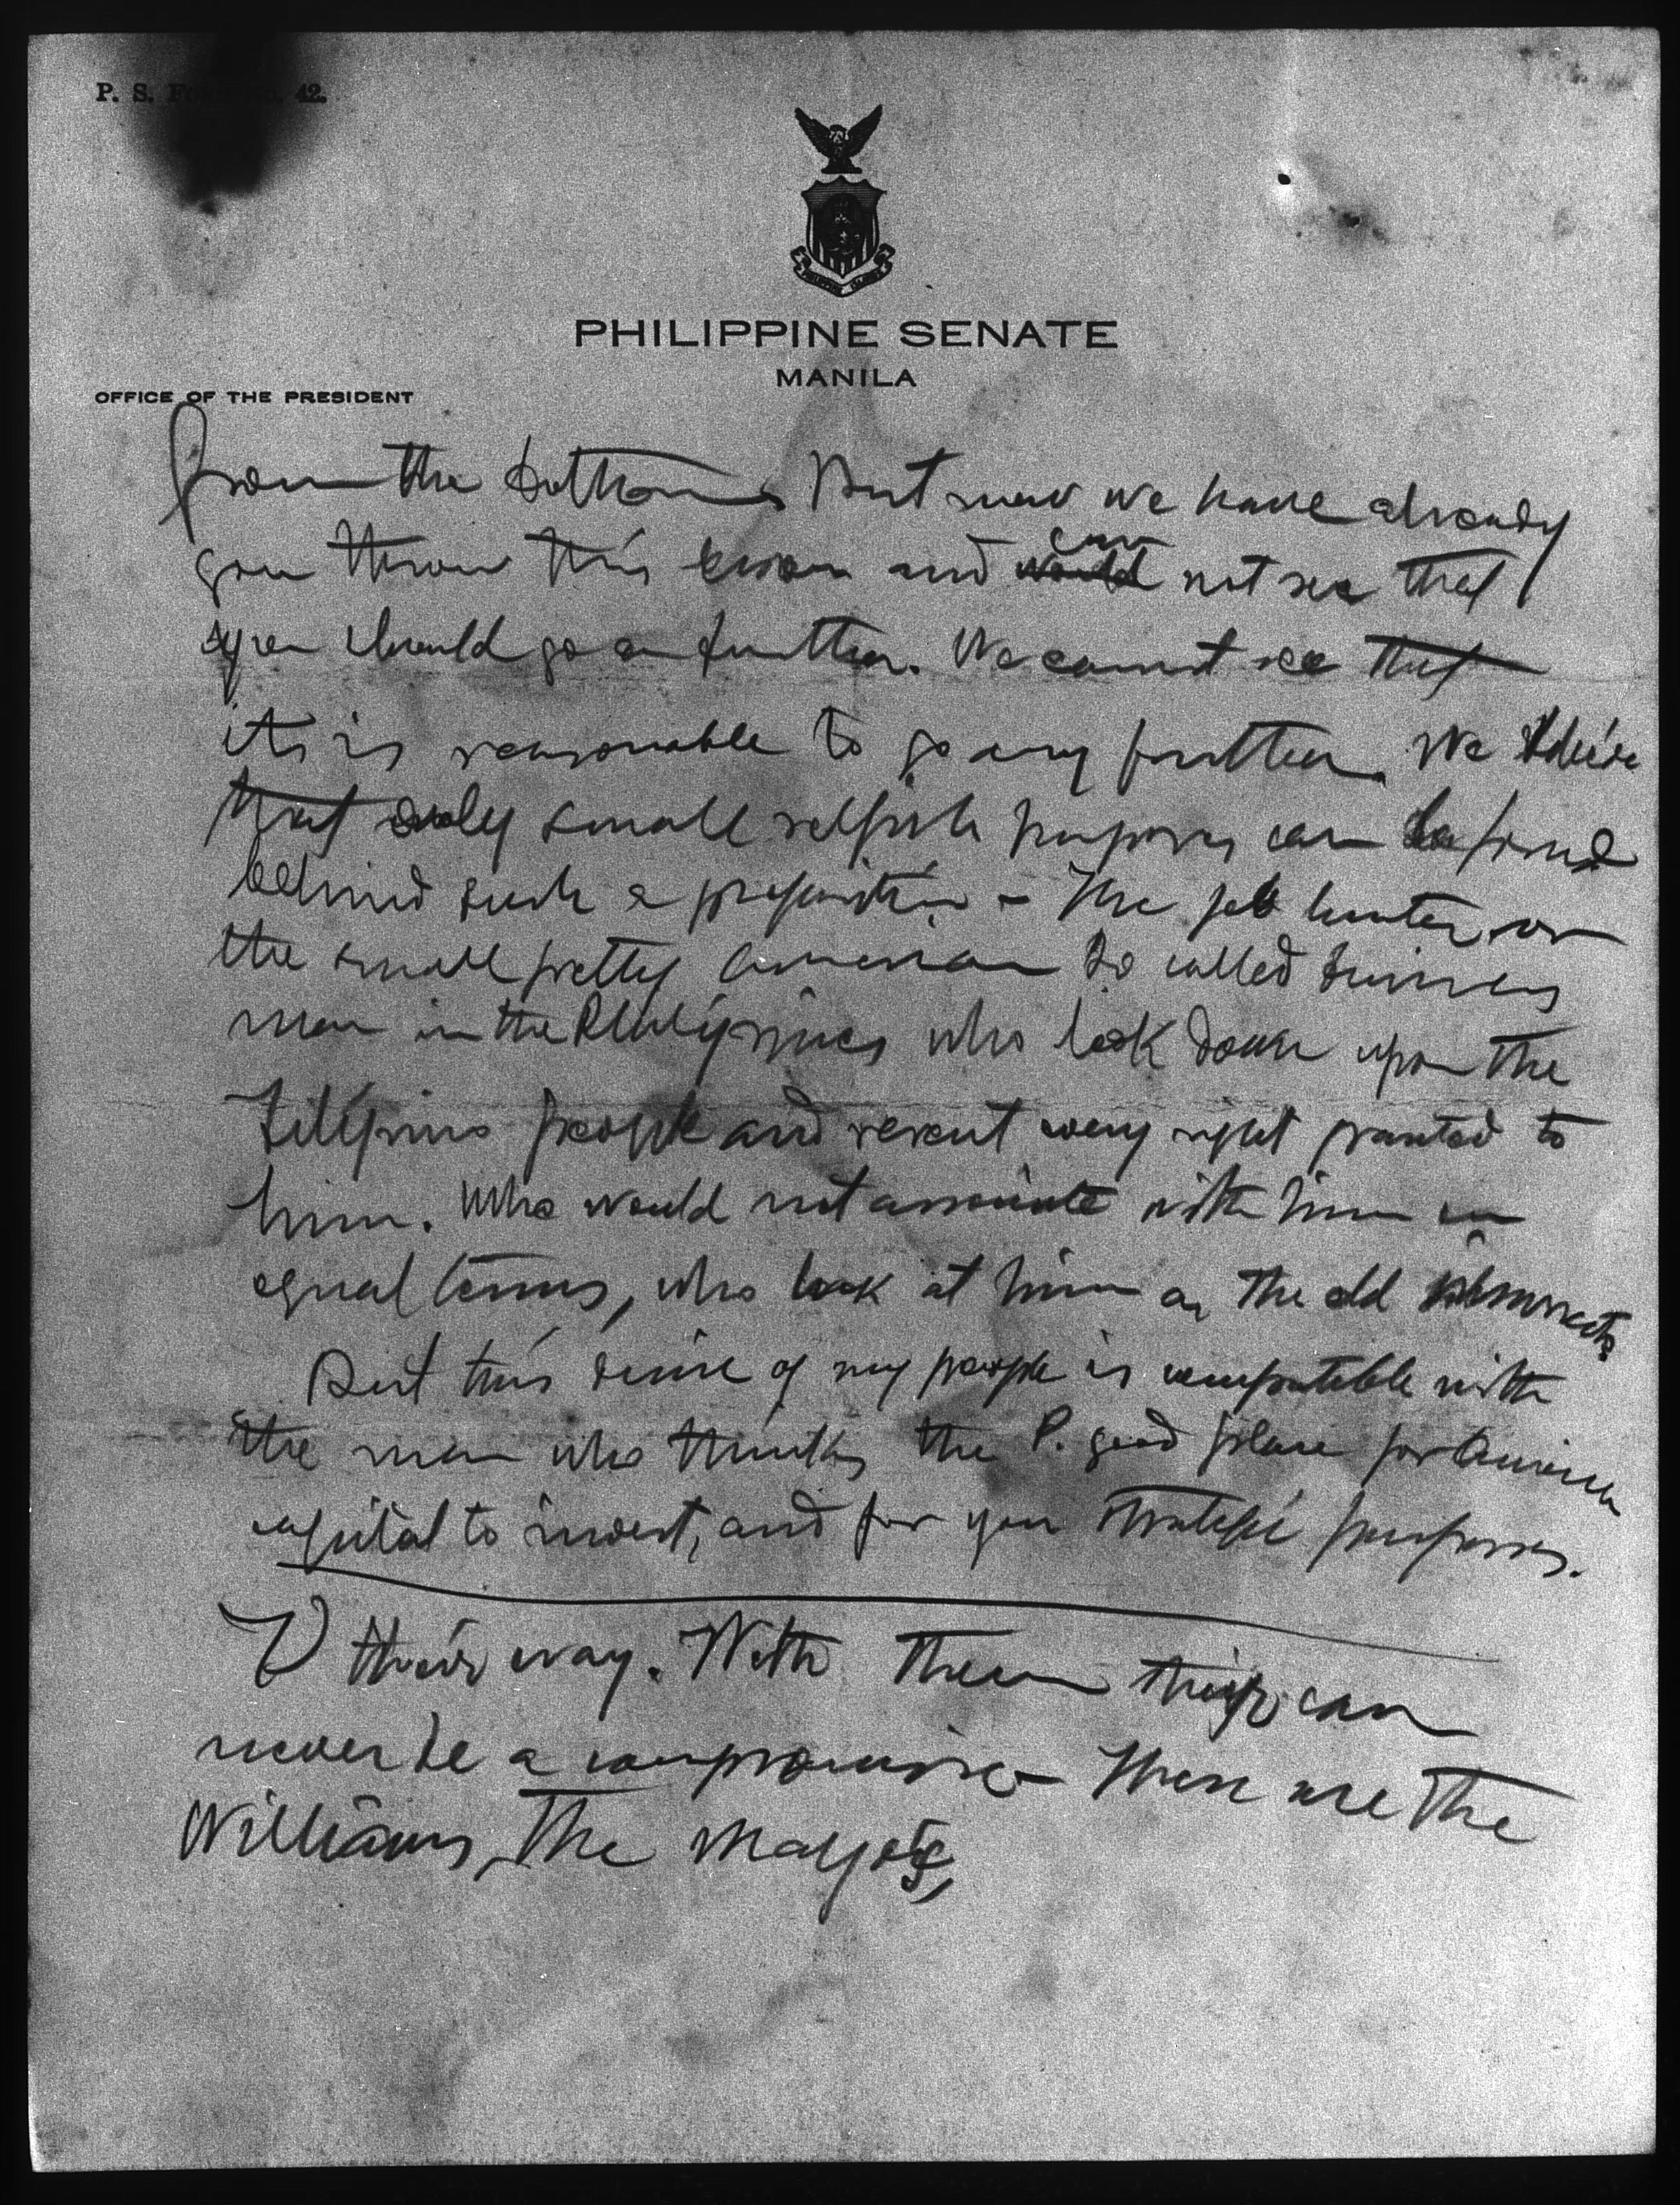 P. S. Fo 42.
PHILIPPINE SENATE
MANILA
OFFICE OF THE PRESIDENT
from the bottom. But now we have already
gon throu this and would can not see that
you should go on further. We cannot see that
its is reasonable to go any further. We
that only small selfish purposes can be found
behind such a proposition - The job hunter, or
the small pretty American so called business
man in the Philippines who look down upon the
Filipino people and resent every right granted to
him. Who would not associate with him in
equal terms, who look at him as the old
But this desire of my people is compatible with
the man who thinks the P. good place for American
capital to invest, and for your strategic purposes.
V their way. With them they can
never be a compromise - These are the
Williams, The